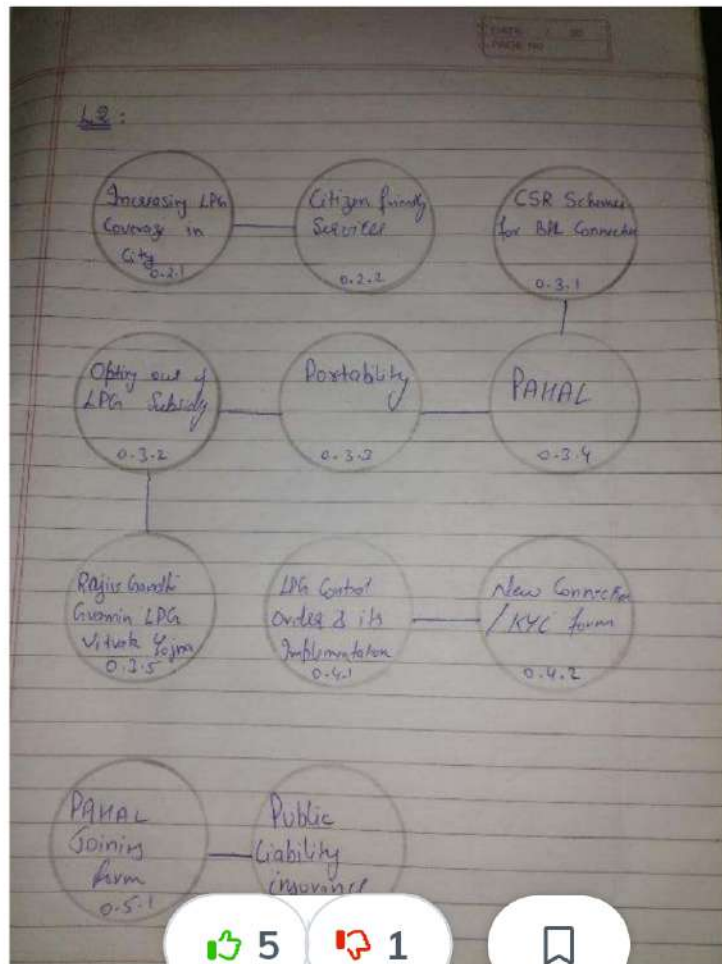 DATE / 20
PAGE NO
L2 :
Increasing LPG
Coverage in
City
0.2.1
Citizen friendly
Services
0.2.2
CSR Schemes
for BPL Connection
0.3.1
Opting out of
LPG Subsidy
0.3.2
Portability
0.3.3
PAHAL
0.3.4
Rajiv Gandhi
Gramin LPG
Vitrak Yojna
0.3.5
LPG Control
Order & its
Implementation
0.4.1
New Connection
/ KYC form
0.4.2
PAHAL
Joining
form
0.5.1
Public
Liability
insurance
5
1